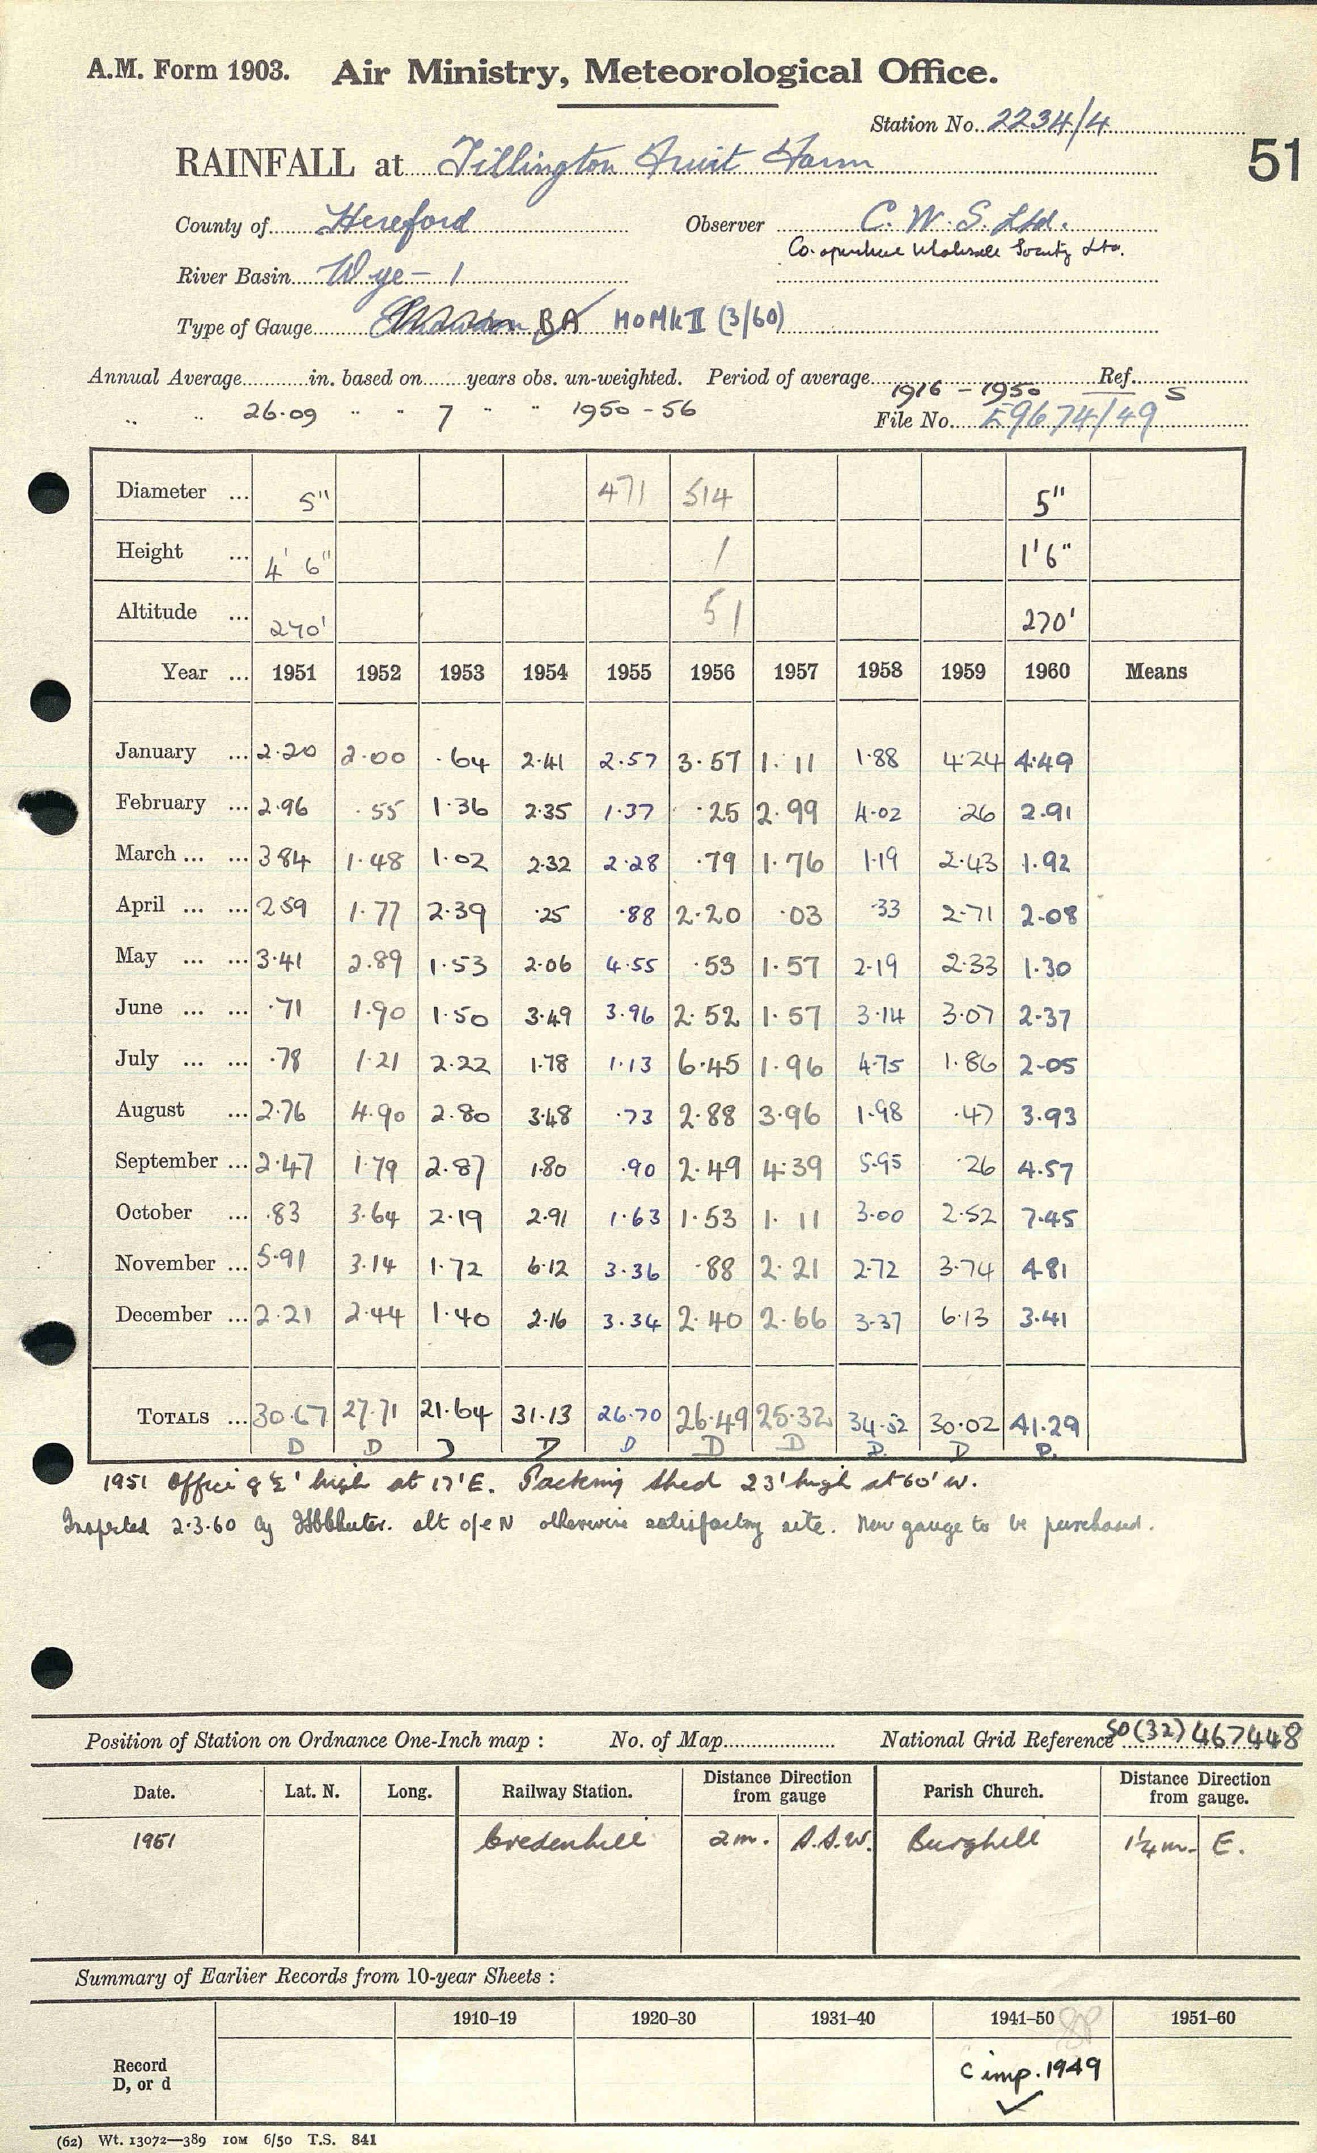 A.M. Form 1903. Air Ministry, Meteorological Office.
Station No. 2234/4
51
RAINFALL at Tillington Fruit Farm
County of Hereford Observer C.W.S. Ltd.
Co-operative Wholesale Society Ltd.
River Basin Wye - 1
Type of Gauge BA MO Mk II (3/60)
Annual Average in. based on years obs. un-weighted. Period of average 1916 - 1950 Ref. S
" 26.09 " " 7 " " 1950 - 56 File No. E9674/49
Diameter ... 5" 471 514 5"
Height ... 4' 6" 1 1'6"
Altitude ... 270' 51 270'
Year ... 1951 1952 1953 1954 1955 1956 1957 1958 1959 1960 Means
January ... 2.20 2.00 .64 2.41 2.57 3.57 1.11 1.88 4.24 4.49
February ... 2.96 .55 1.36 2.35 1.37 .25 2.99 4.02 .26 2.91
March ... ... 3 84 1.48 1.02 2.32 2.28 .79 1.76 1.19 2.43 1.92
April ... ... 2 59 1.77 2.39 .25 .88 2.20 .03 .33 2.71 2.08
May ... ... 3.41 2.89 1.53 2.06 4.55 .53 1.57 2.19 2.33 1.30
June ... ... .71 1.90 1.50 3.49 3.96 2.52 1.57 3.14 3.07 2.37
July ... ... .78 1.21 2.22 1.78 1.13 6.45 1.96 4.75 1.86 2.05
August ... 2.76 4.90 2.80 3.48 .73 2.88 3.96 1.98 .47 3.93
September ... 2.47 1.79 2.87 1.80 .90 2.49 4.39 5.95 .26 4.57
October ... .83 3.64 2.19 2.91 1.63 1.53 1.11 3.00 2.52 7.45
November ... 5.91 3.14 1.72 6.12 3.36 .88 2.21 2.72 3.74 4.81
December ... 2.21 2.44 1.40 2.16 3.34 2.40 2.66 3.37 6.13 3.41
TOTALS ... 30.67 27.71 21.64 31.13 26.70 26.49 25.32 34.52 30.02 41.29
D D D D D D D D D D.
1951 Office 8½' high at 17' E. Packing shed 23' high at 60' W.
Inspected 2.3.60 by alt o/e N otherwise satisfactory site. New gauge to be purchased.
Position of Station on Ordnance One-Inch map : No. of Map National Grid Reference SO (32) 467448
Date. Lat. N. Long. Railway Station. Distance Direction from gauge Parish Church. Distance Direction from gauge.
1951 Credenhill 2m. S.S.W. Burghill 1¼m. E.
Summary of Earlier Records from 10-year Sheets :
1910-19 1920-30 1931-40 1941-50 1951-60
Record
D, or d
C imp. 1949
(62) Wt. 13072—389 10M 6/50 T.S. 841